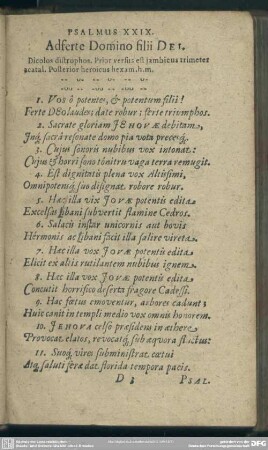 PSALMUS XXIX.
Adferte Domino filii DEI.
Dicolos distrophos. Prior versus est jambicus trimeter
acatal. Posterior heroicus hexam. h.m.
1. Vos ô potentes, & potentum filii!
Ferte DEO laudes: date robur: ferte triomphos.
2. Sacrate gloriam JEHOVÆ debitam,
Inq́; sacrâ resonate domo pia vota preceq́;.
3. Cujus sonoris nubibus vox intonat:
Cujus & horrisono tonitru vaga terra remugit.
4. Est dignitatis plena vox Altissimi,
Omnipotensq́; suo disignat robore robur.
5. Hæc illa vix JOVÆ potentis edita
Excelsas Libani subvertit flamine Cedros.
6. Salacis instar unicornis aut bovis
Hermonis ac Libani facit illa salire vireta.
7. Hæc illa vox JOVÆ potentis edita
Elicit ex altis rutilantem nubibus ignem.
8. Hæc illa vox JOVÆ potentis edita
Concutit horrifico deserta fragore Cadessi.
9. Hac fœtus emoventur, arbores cadunt;
Huic canit in templi medio vox omnis honorem.
10. JEHOVA celso præsidens in æthere
Provocat elatos, revocatq́; sub æquora fluctus:
11. Suoq́; vires subministrat cœtui
Atq́; saluti feræ dat florida tempora pacis.
D 3 PSAL.